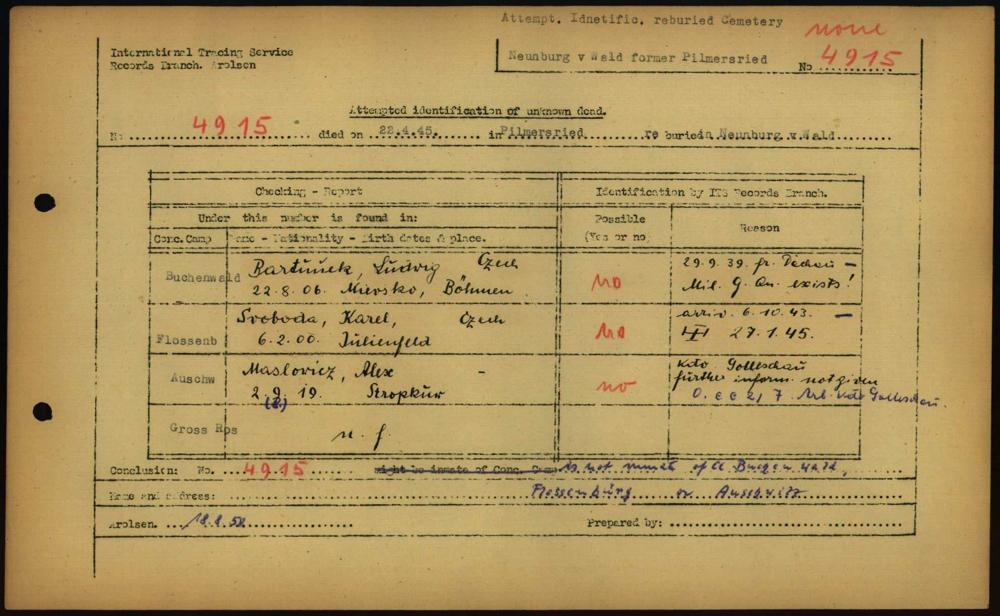 Attempt. Idnetific. reburied Cemetery
none
International Tracing Service
Records Branch. Arolsen
Neunburg v Wald former Pilmersried
No 4915
Attempted identification of unknown dead.
No 4915 died on 22.4.45. in Pilmersried re buried in Neunburg v.Wald
Checking - Report
Identification by ITS Records Branch.
Under this number is found in:
Possible (Yes or no)
Reason
Conc. Camp
Name - Nationality - Birth dates & place.
Buchenwald
Bartunek, Ludwig Czech
22.8.06. Mirovsko, Böhmen
no
29.9.39. fr. Dachau -
Mil. G. exists!
Flossenb
Svoboda, Karel, Czech
6.2.00. Julienfeld
no
arriv. 6.10.43. -
27.1.45.
Auschw
Maslovicz, Alex -
2.9.19. Stropkuw
(2.)
no
Kdo. Golleschau
further inform. not given
Arb. Kdo Golleschau.
Gross Ros
n. f.
Conclusion: No. 4915 might be inmate of Conc. Camp is not inmate of Cl. Buchenwald,
Name and address: Flossenbürg or Auschwitz
Arolsen. 18.8.50
Prepared by: